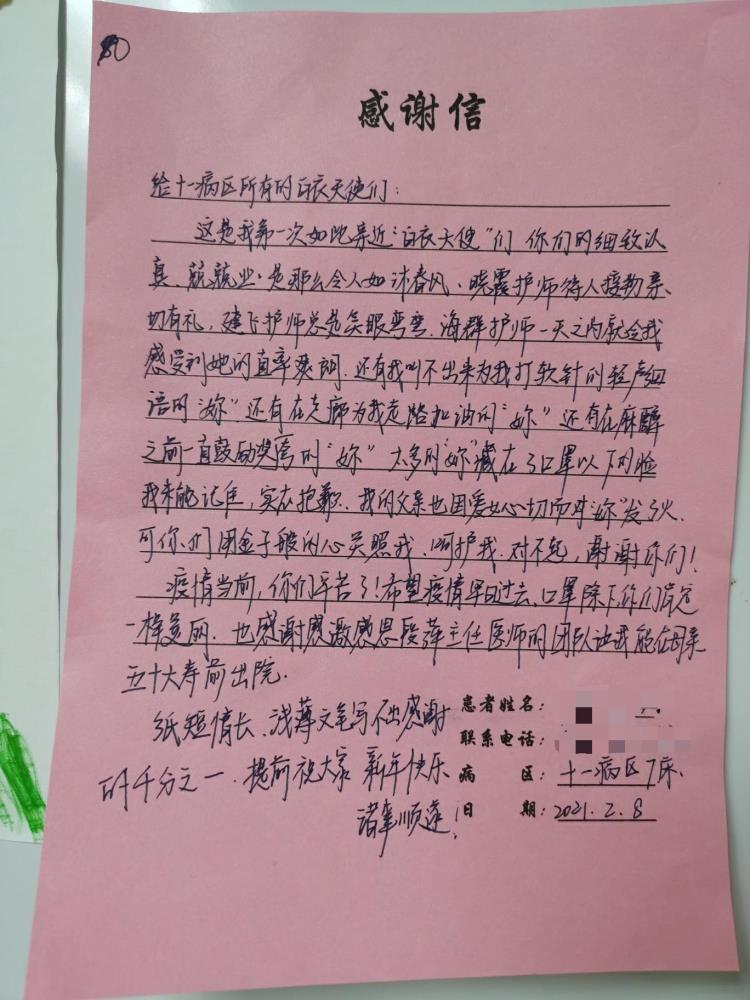 感谢信
给十一病区所有的白衣天使们：
这是我第一次如此亲近“白衣天使”们 你们的细致认
真、兢兢业业是那么令人如沐春风、晓霞护师待人接物亲
切有礼，建飞护师总是笑眼弯弯、海群护师一天之内就给我
感受到她的直率爽朗、还有我叫不出来为我打软针的轻声细
语的“妳”还有在走廊为我走路加油的“妳”还有在麻醉
之前一直鼓励奖夸的“妳” 太多的“妳”藏在了口罩以下的脸
我未能记住，实在抱歉、我的父亲也因爱女心切而对“妳”发了火、
可你们用金子般的心关照我、呵护我、对不起，谢谢你们！
疫情当前，你们辛苦了！希望疫情早日过去、口罩除下、你们肯定
一样美丽、也感谢感激感恩段萍主任医师的团队让我能在母亲
五十大寿前出院、
纸短情长、浅薄文笔写不出感谢
的千分之一、提前祝大家 新年快乐
诸事顺遂！
患者姓名：
联系电话：
病 区：十一病区7床、
日 期：2021.2.8